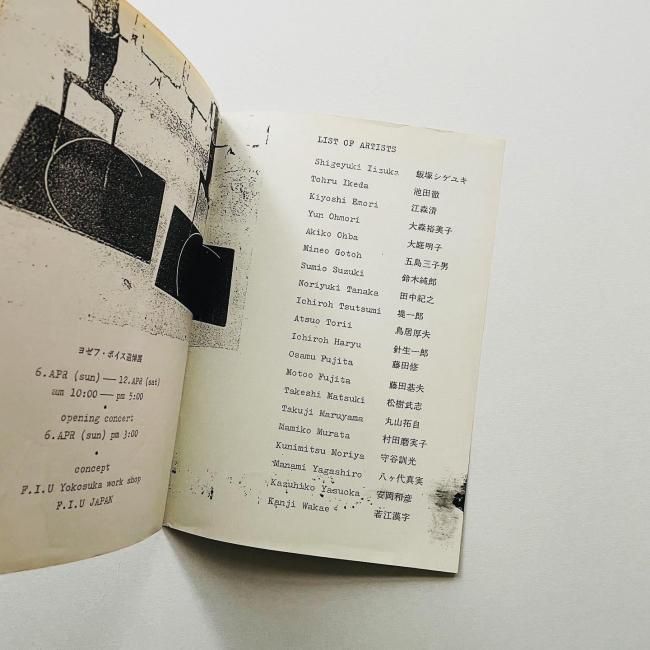 ヨゼフ・ボイス追悼展
6.APR (sun) — 12.APR (sat)
am 10:00 — pm 5:00
•
opening concert
6.APR (sun) pm 3:00
•
concept
F.I.U Yokosuka work shop
F.I.U JAPAN
LIST OF ARTISTS
Shigeyuki Iizuka 飯塚シゲユキ
Tohru Ikeda 池田徹
Kiyoshi Emori 江森清
Yun Ohmori 大森裕美子
Akiko Ohba 大庭明子
Mineo Gotoh 五島三子男
Sumio Suzuki 鈴木純郎
Noriyuki Tanaka 田中紀之
Ichiroh Tsutsumi 堤一郎
Atsuo Torii 鳥居厚夫
Ichiroh Haryu 針生一郎
Osamu Fujita 藤田修
Motoo Fujita 藤田基夫
Takeshi Matsuki 松樹武志
Takuji Maruyama 丸山拓自
Mamiko Murata 村田磨実子
Kunimitsu Moriya 守谷訓光
Manami Yagashiro 八ヶ代真実
Kazuhiko Yasuoka 安岡和彦
Kanji Wakae 若江漢字